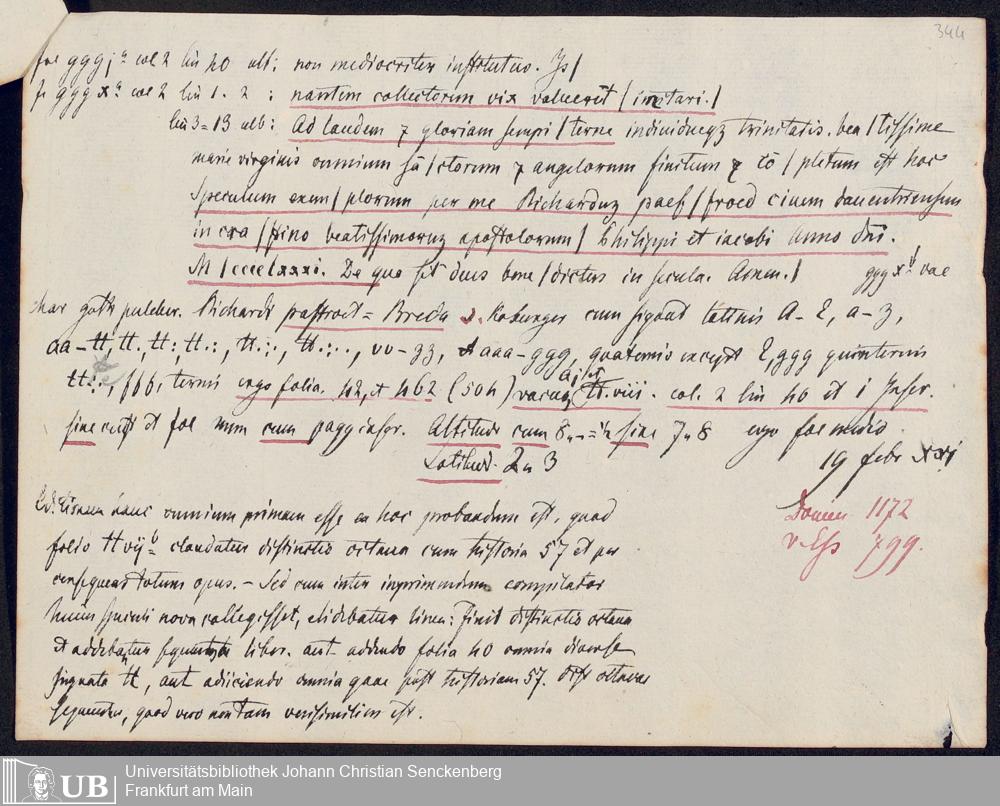 344
fae ggg j a col 2 lin 40 ult: non mediocriter institutus. Is/
Ja ggg x a col 2 lin 1. 2 : nantem collectorum vix valuerit / imitari./
lin 3=13 ulb: Ad laudem z gloriam sempi/terne individueqz trinitatis. bea/tissime
marie virginis omnium sā/ctorum z angelorum finitum z cō/pletum est hoc
Speculum exem/plorum per me Richardum paef/froed civem daventriensem
in cra/stino beatissimorum apostolorum/ Philippi et iacobi Anno dni.
M/cccclxxxi. De quo sit deus bene/dictus in secula. Amen./ ggg x b vac
Richardi paffroet = Breda
cum signat latinis A-2, a-z,
aa-tt, vv-zz, et aaa-ggg, quaternio except 2, ggg quinternis
fff, ternis ergo folia. 42, et 462 (504) vacua a j, et tt.viii. col. 2 lin 40 et i Infer.
sine et fol num cum pagg infer. Altitud cum sine 7 u 8 ergo fol
Latitud. 2 u 3
19 febr xxi
Editionem hanc omnium primam esse ex hoc probandum est, quod
Donuen 1172
folio tt vij b claudatur distinctio octava cum historia 57 et per
v. Ess 799.
consequens totum opus. - Sed cum inter inprimendum compilator
huius speculi nova collegisset, elidebatur linea: Finit distinctio octava
et addebatur sequens liber. aut addendo folia 40 omnia diverse
signata tt, aut adiiciendo omnia quae post historiam 57. dist octavae
sequuntur, quod vero non tam verisimilius est.
UB
Universitätsbibliothek Johann Christian Senckenberg
Frankfurt am Main